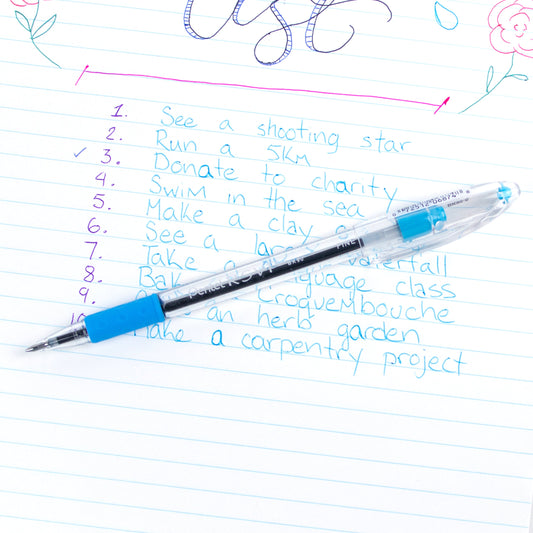 1. See a shooting star
2. Run a 5Km
✓ 3. Donate to charity
4. Swim in the sea
5. Make a clay
6. See a waterfall
7. Take a class
8. Croquembouche
9. an herb garden
10 Make a carpentry project
Pentel R.S.V.P. FINE